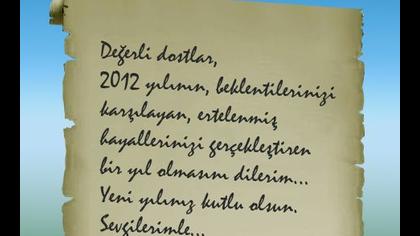 Değerli dostlar,
2012 yılının, beklentilerinizi
karşılayan, ertelenmiş
hayallerinizi gerçekleştiren
bir yıl olmasını dilerim...
Yeni yılınız kutlu olsun.
Sevgilerimle...